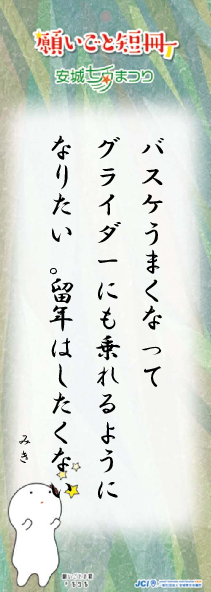 願いごと短冊
安城七夕まつり
バスケうまくなって
グライダーにも乗れるように
なりたい 。留年はしたくない
みき
JCI